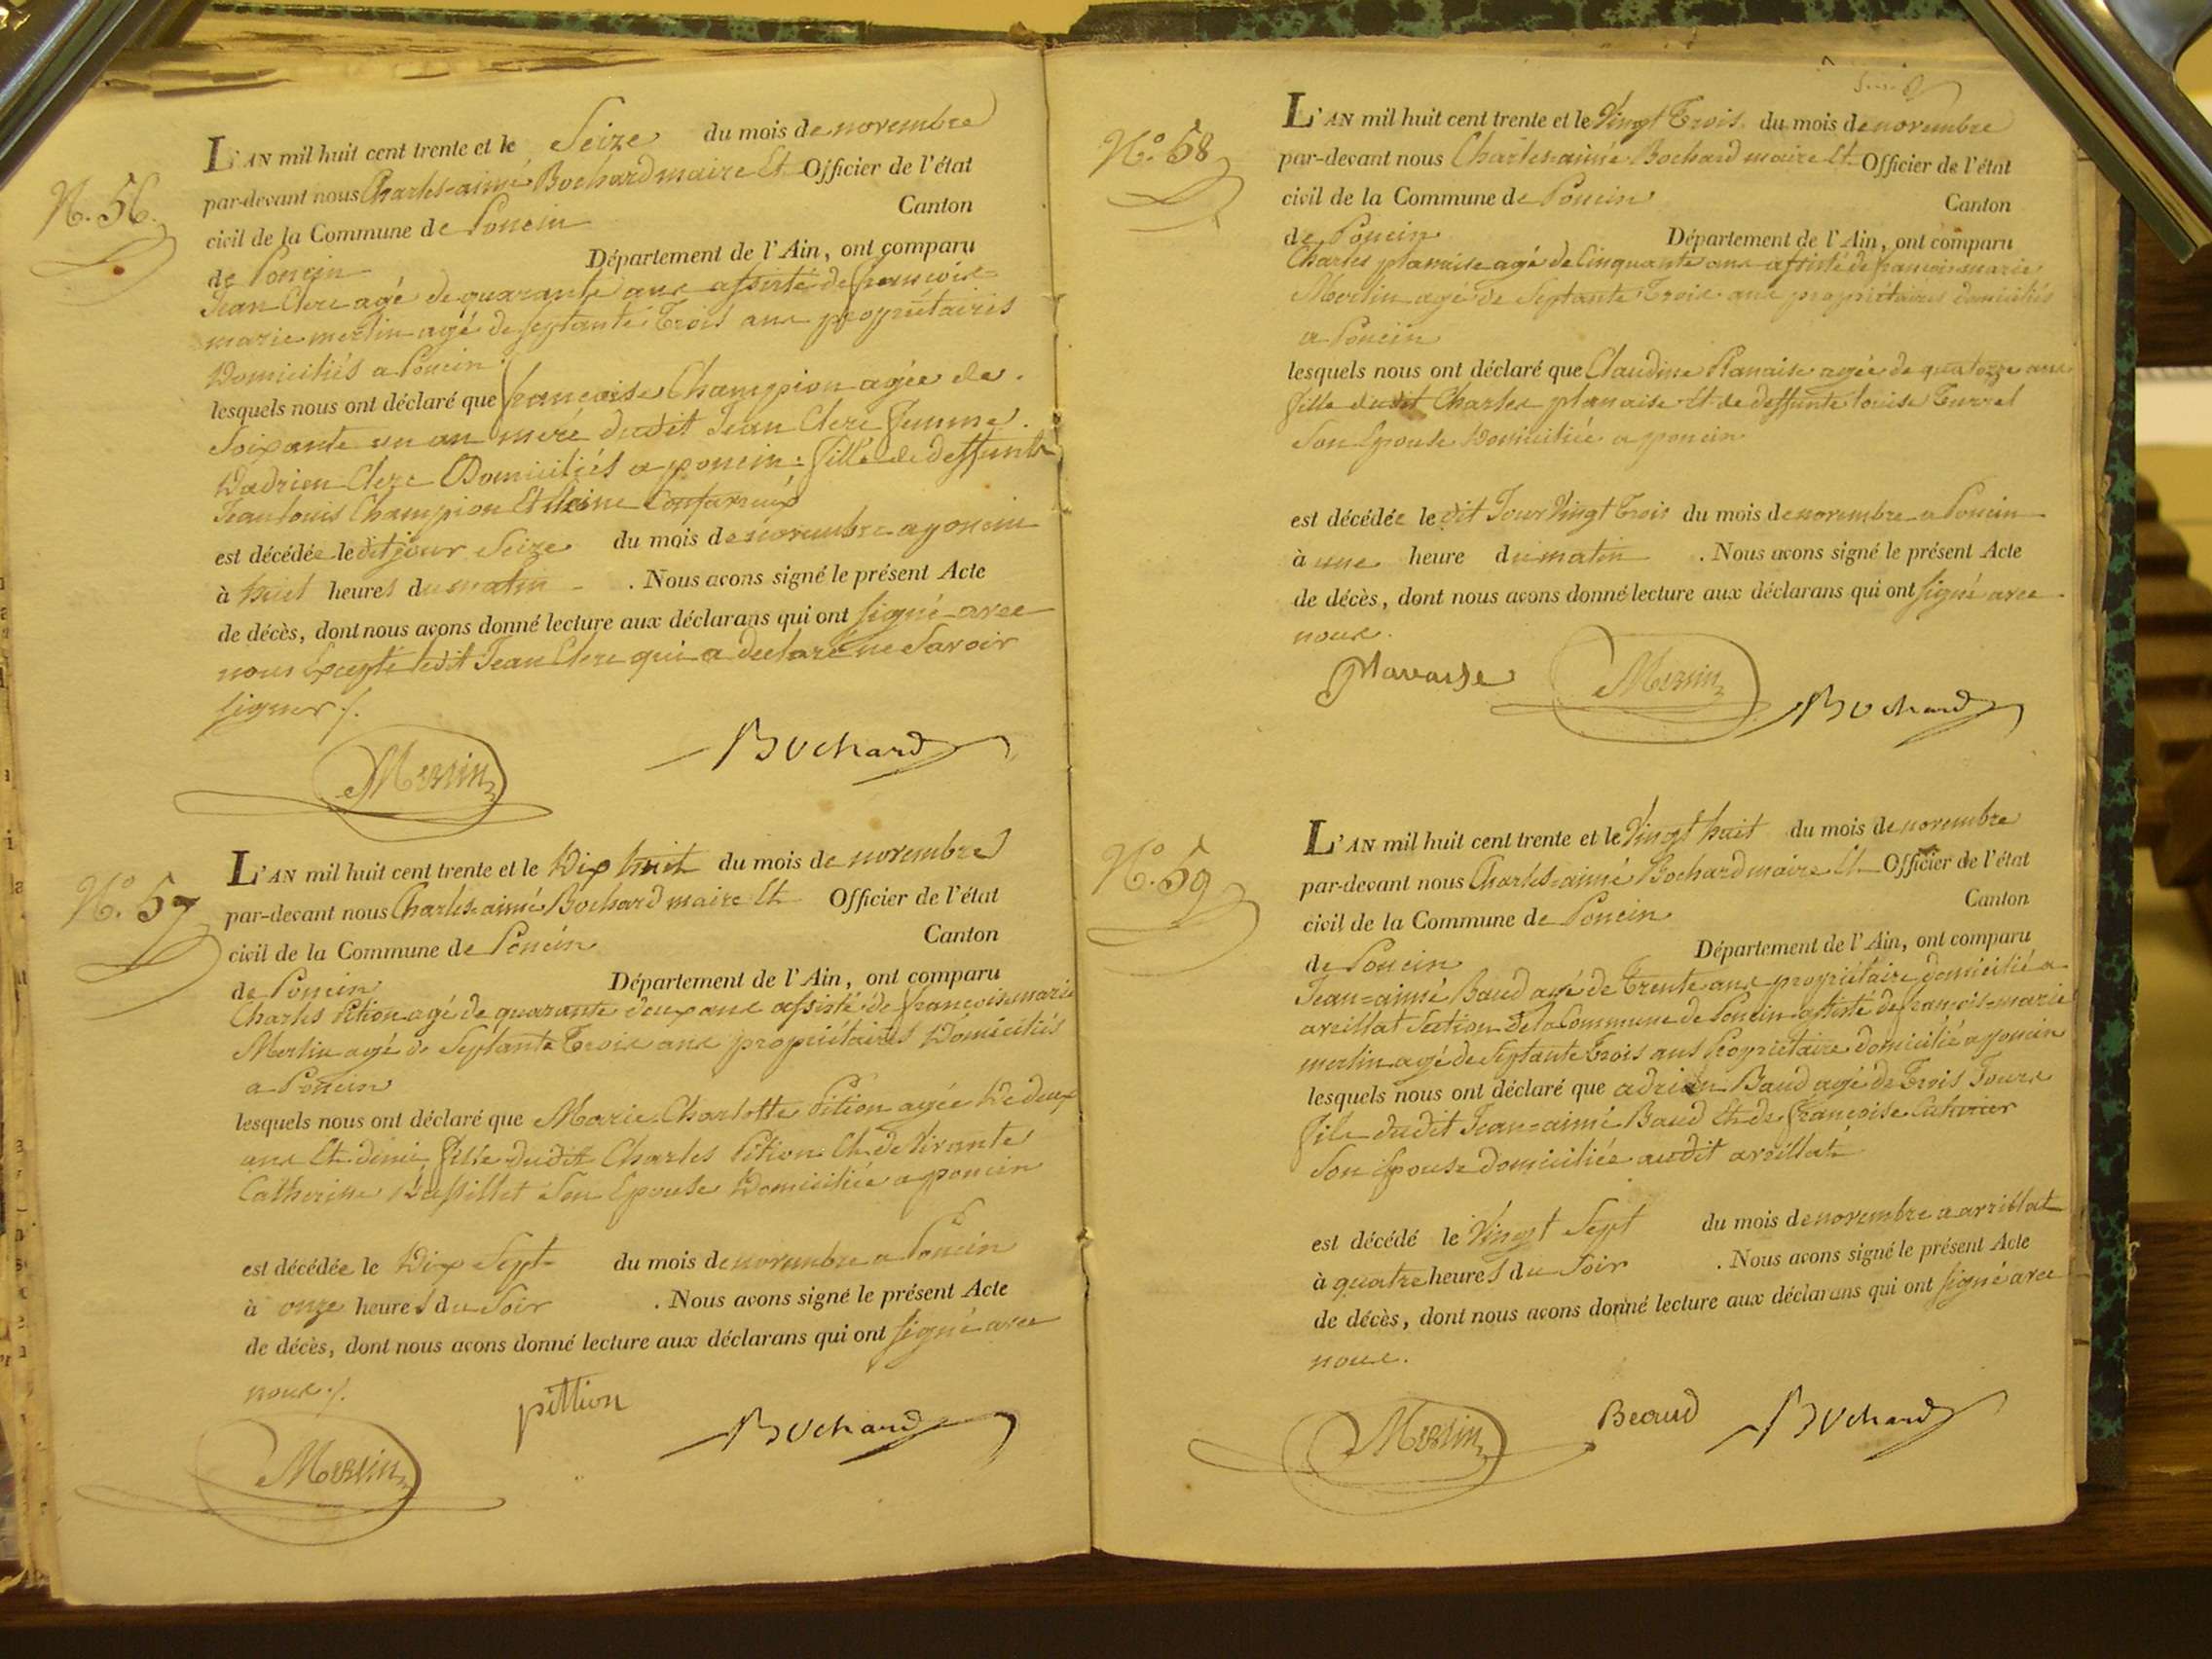 N.o 56.
L'AN mil huit cent trente et le Seize du mois de novembre
par-devant nous Charles-aimé Bochard maire Et Officier de l'état
civil de la Commune de Poncin Canton
de Poncin Département de l'Ain, ont comparu
Jean Clerc agé de quarante ans assisté de francoise
marie merlin agé de septante Trois ans propriétaires
Domiciliés a Poncin
lesquels nous ont déclaré que françoise Champion agée de
Soixante un an mere dudit Jean Clerc femme
D'adrien Clerc Domiciliés a poncin. fille de deffunts
Jean louis Champion Et
est décédée le dit jour Seize du mois de novembre a poncin
à huit heures du matin . Nous avons signé le présent Acte
de décès, dont nous avons donné lecture aux déclarans qui ont signé avec
nous Excepté ledit Jean Clerc qui a declaré ne Savoir
signer ./.
Merlin Bochard
N.o 57
L'AN mil huit cent trente et le Dix huit du mois de novembre
par-devant nous Charles-aimé Bochard maire Et Officier de l'état
civil de la Commune de Poncin Canton
de Poncin Département de l'Ain, ont comparu
Charles Pition agé de quarante deux ans assisté de francois marie
Merlin agé de Septante Trois ans propriétaires Domiciliés
a Poncin
lesquels nous ont déclaré que Marie Charlotte Pition agée De deux
ans Et demi fille dudit Charles Pition Et de Vivante
Catherine Son Epouse Domiciliée a poncin
est décédée le Dix Sept du mois de novembre a Poncin
à onze heures du Soir . Nous avons signé le présent Acte
de décès, dont nous avons donné lecture aux déclarans qui ont signé avec
nous ./.
pittion
Merlin Bochard
N.o 58
L'AN mil huit cent trente et le Vingt Trois du mois de novembre
par-devant nous Charles-aimé Bochard maire Et Officier de l'état
civil de la Commune de Poncin Canton
de Poncin Département de l'Ain, ont comparu
Charles planaise agé de Cinquante ans assisté de francois marie
Merlin agé de Septante Trois ans propriétaires domiciliés
a Poncin
lesquels nous ont déclaré que Claudine Planaise agée de quatorze ans
fille dudit Charles planaise Et de deffunte louise Turrel
Son Epouse Domiciliée a poncin
est décédée le dit Jour Vingt Trois du mois de novembre a Poncin
à une heure du matin . Nous avons signé le présent Acte
de décès, dont nous avons donné lecture aux déclarans qui ont signé avec
nous.
Merlin Bochard
N.o 59
L'AN mil huit cent trente et le Vingt huit du mois de novembre
par-devant nous Charles-aimé Bochard maire Et Officier de l'état
civil de la Commune de Poncin Canton
de Poncin Département de l'Ain, ont comparu
Jean=aimé Baud agé de Trente ans propriétaire domicilié a
avrillat Section de la Commune de Poncin assisté de francois-marie
merlin agé de Septante Trois ans Propriétaire domicilié a poncin
lesquels nous ont déclaré que adrien Baud agé de Trois Jours
fils dudit Jean=aimé Baud Et de françoise
Son Epouse domiciliée audit avrillat
est décédé le Vingt Sept du mois de novembre a avrillat
à quatre heures du Soir . Nous avons signé le présent Acte
de décès, dont nous avons donné lecture aux déclarans qui ont signé avec
nous.
Merlin Beaud Bochard